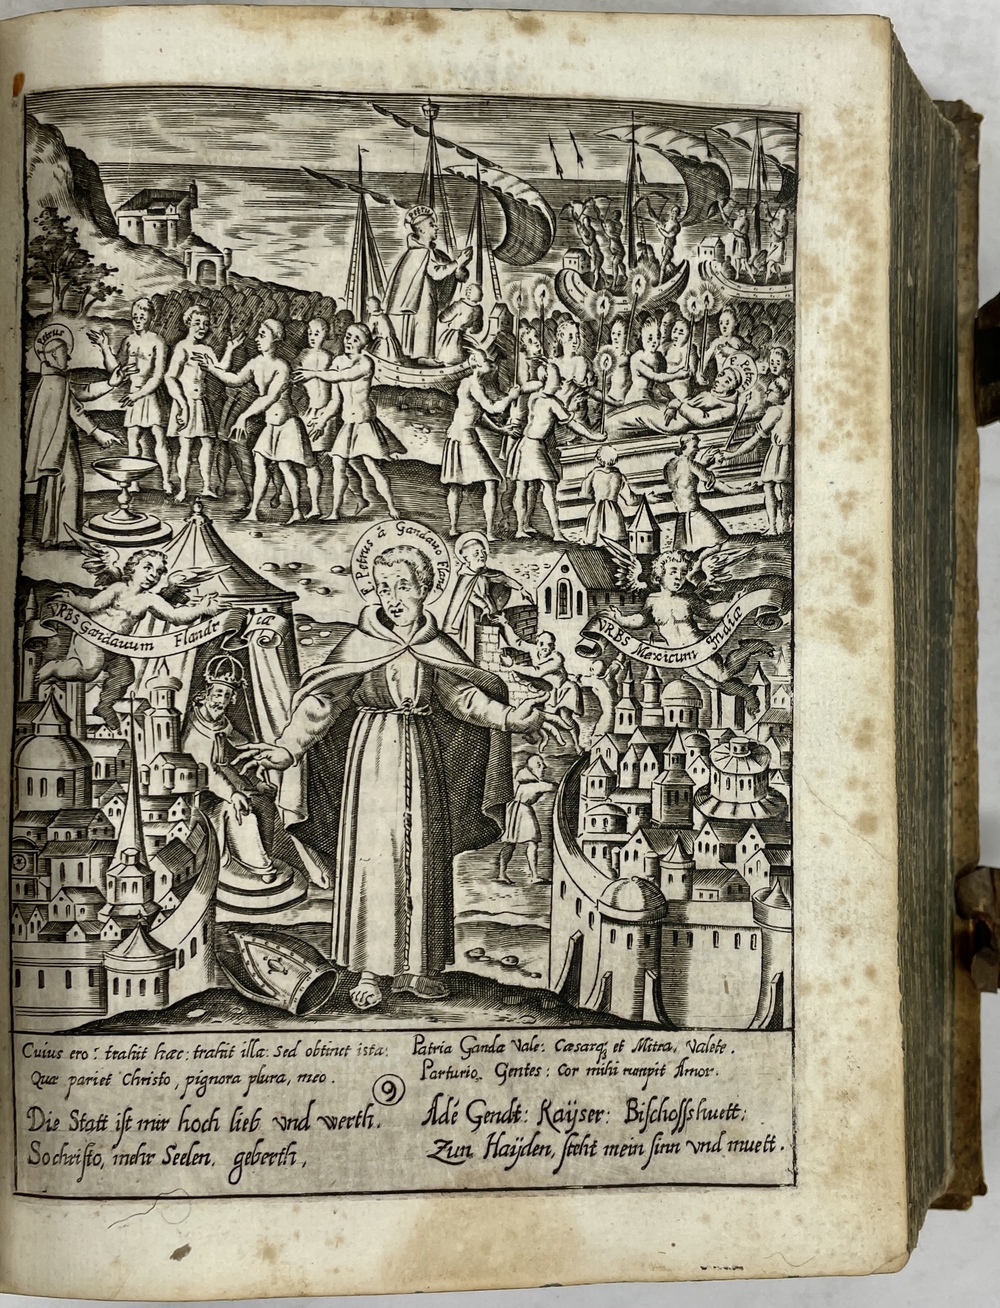 Petrus
Petrus
P. Petrus
P. Petrus á Gandauo Fland
VRBS Gandauum Flandr iæ
VRBS Mexicum Indiæ
Cuius ero? trahit hæc: trahit illa: Sed obtinet ista:
Quæ pariet Christo, pignora plura, meo.
Patria Ganda Vale: Cæsarq₃ et Mitra, Valete.
Parturio, Gentes: Cor mihi rumpit Amor.
9
Die Statt ist mir hoch lieb vnd werth.
So christo, mehr Seelen, geberth,
Adé Gendt: Kaÿser: Bischoffshuett:
Zun Haÿden, steht mein sinn vnd muett.